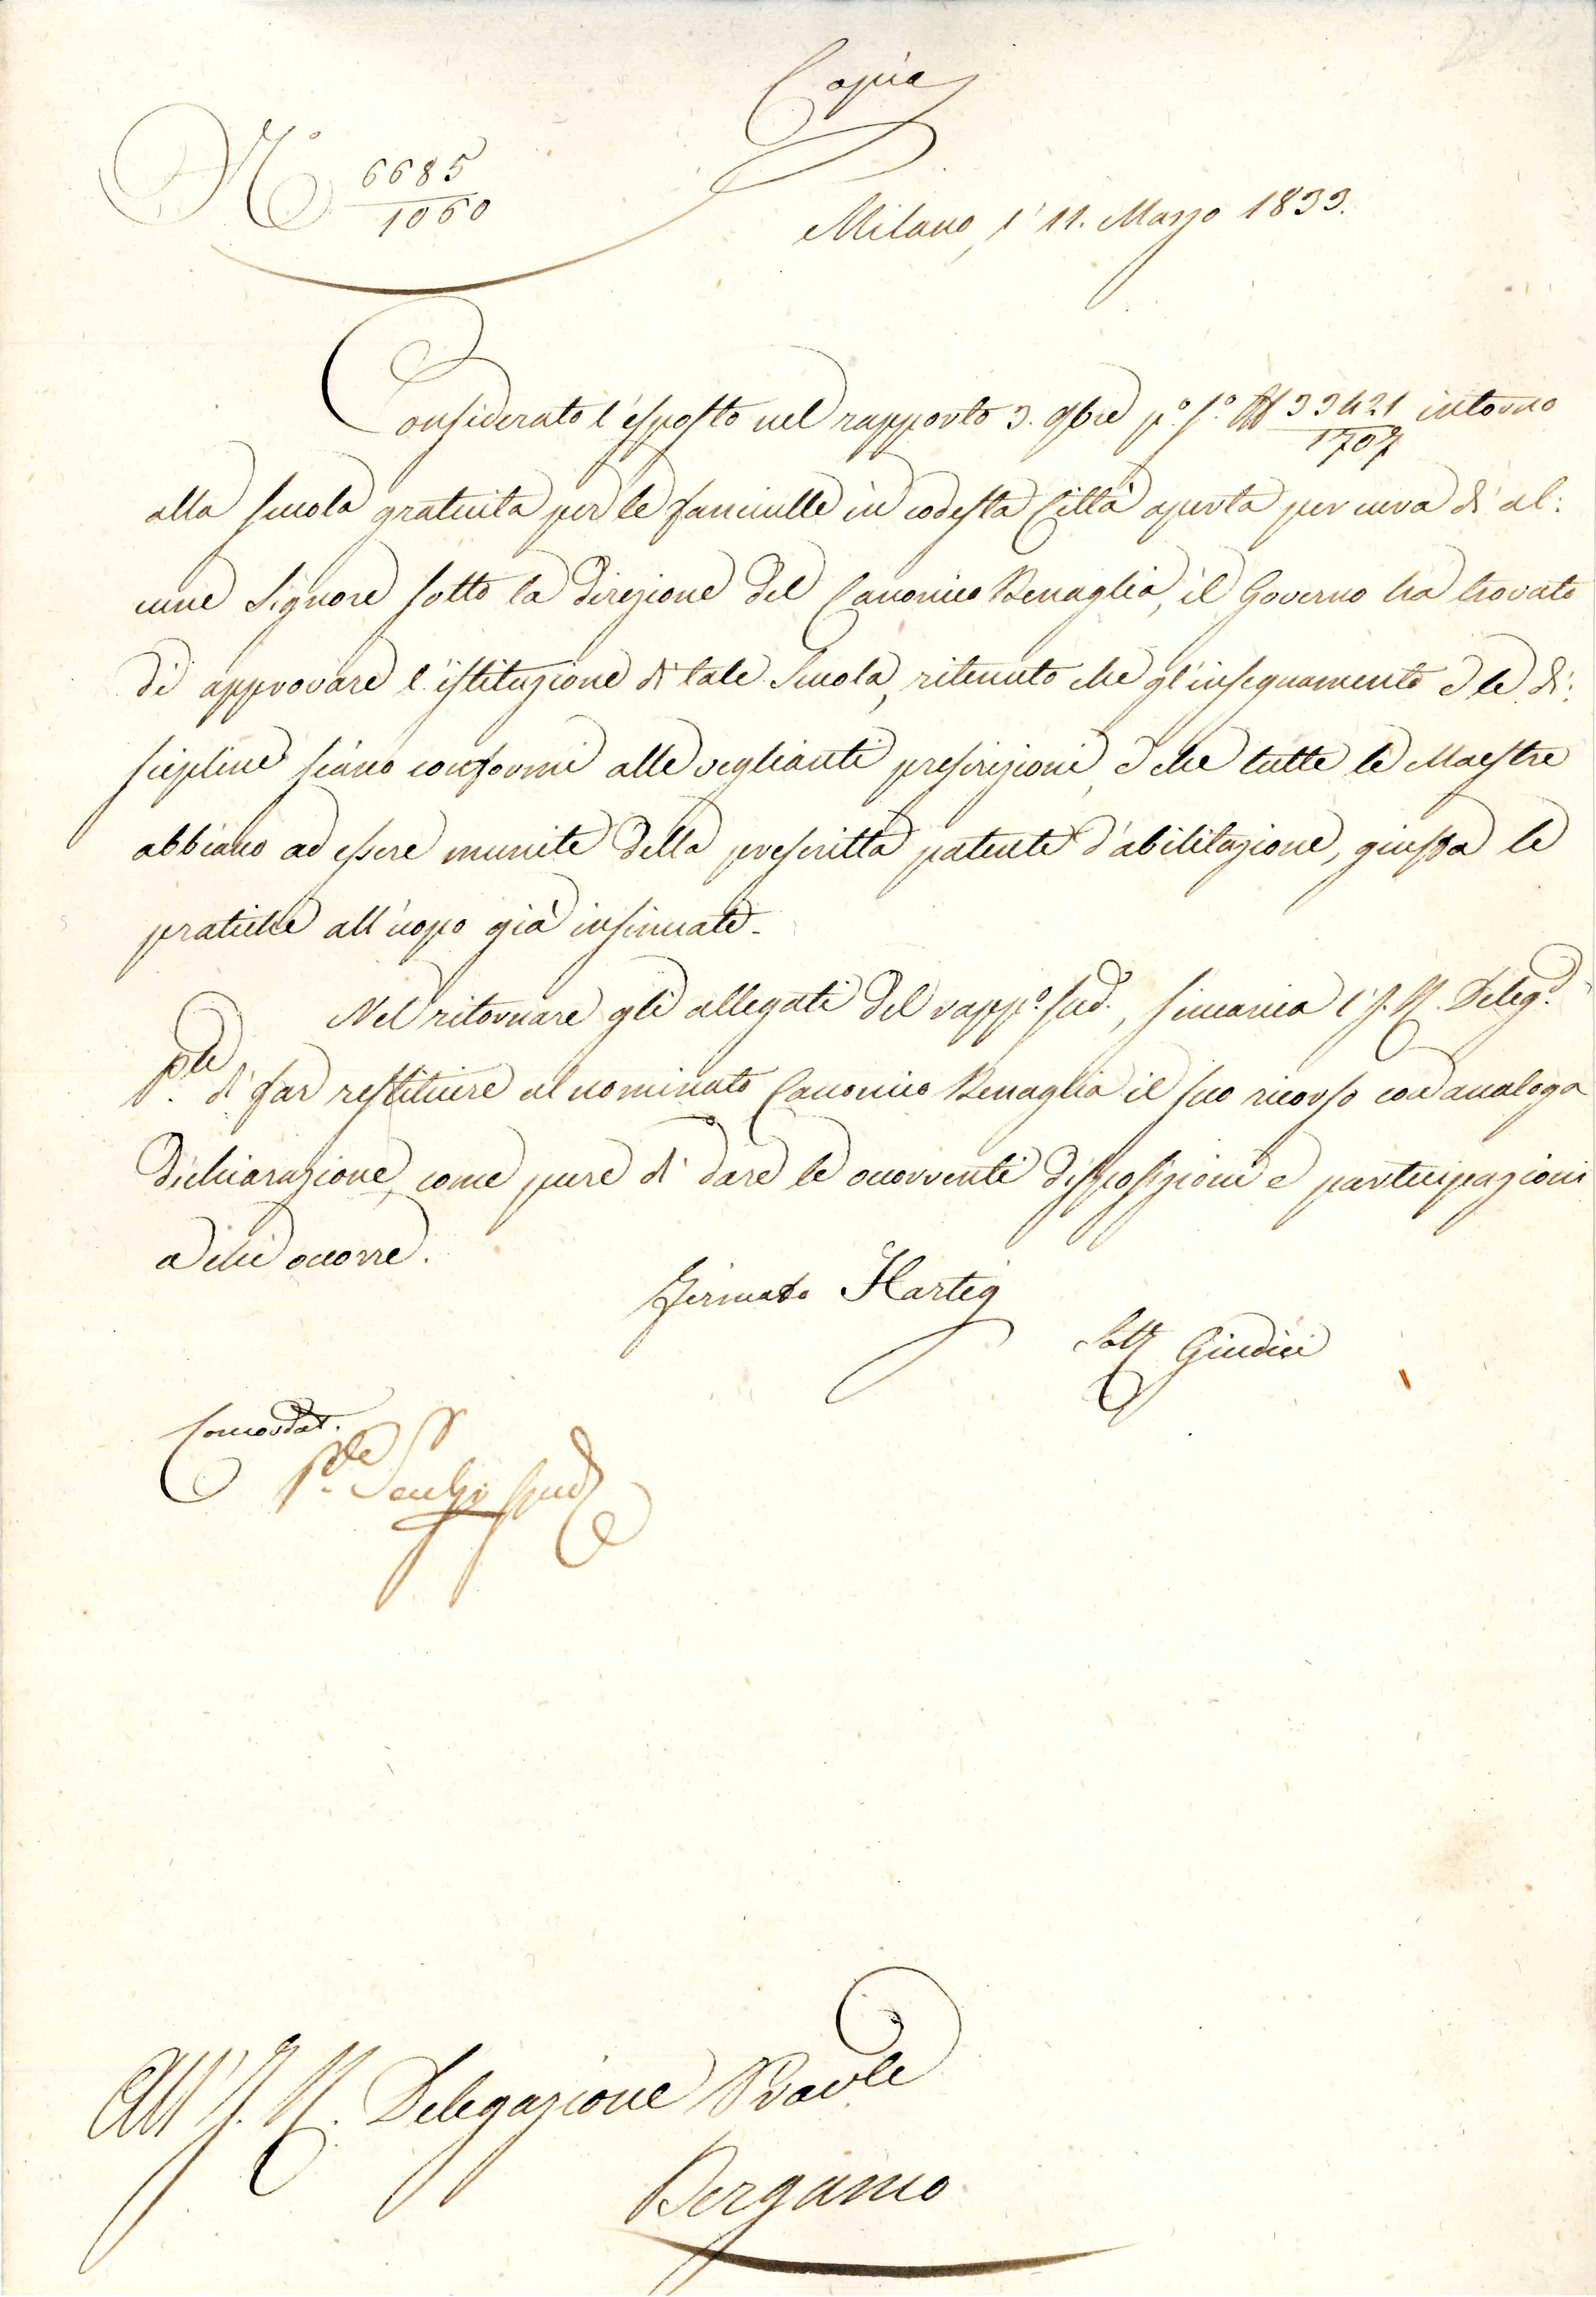 Copia
N.° 6685/1060
Milano, l' 11. Marzo 1833.
Considerato l'esposto nel rapporto 3. 9bre p.° p.° N 33421/1707 intorno
alla scuola gratuita per le fanciulle in codesta Città aperta per cura di al:
cune Signore sotto la direzione del Canonico Benaglia, il Governo ha trovato
di approvare l'istituzione di tale Scuola, ritenuto che gl'insegnamenti e le di:
scipline siano conformi alle veglianti prescrizioni, e che tutte le Maestre
abbiano ad essere munite della prescritta patente d'abilitazione, giusta le
pratiche all'uopo già insinuate.
Nel ritornare gli allegati del rapp.° sud.°, s'incarica l'I. R. Deleg.e
P.le di far restituire al nominato Canonico Benaglia il suo ricorso con analoga
dichiarazione, come pure di dare le occorrenti disposizioni e partecipazioni
a chi occorre.
Firmato Hartig
Sott Giudici
Concordat.
All' I. R. Delegazione Prov.le
Bergamo